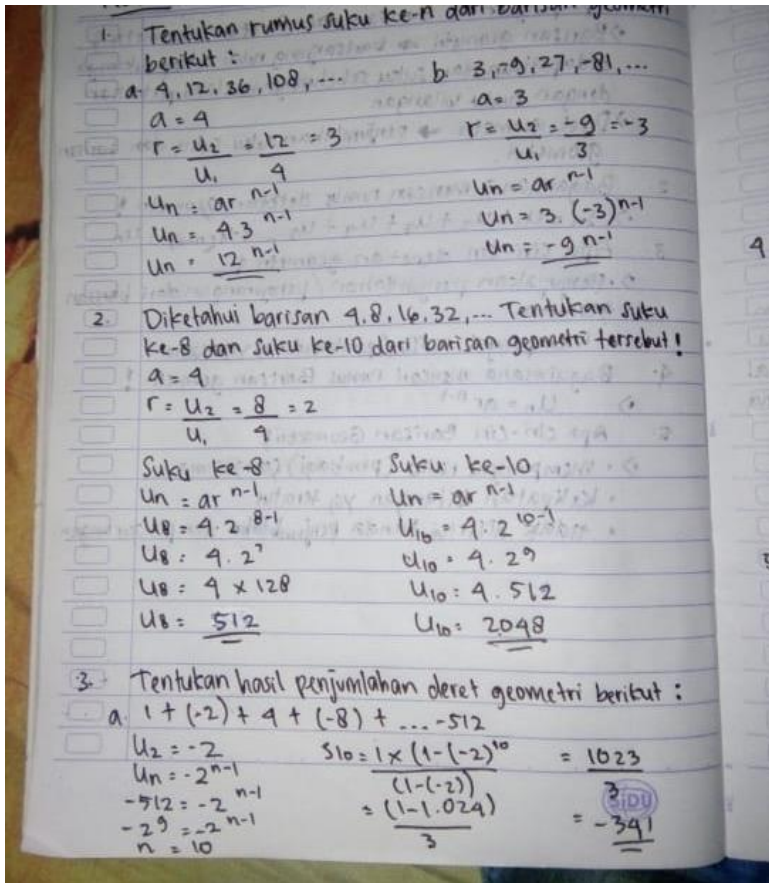 1. Tentukan rumus suku ke-n dari barisan geometri
berikut :
a. 4, 12, 36, 108, ....
a = 4
r = u2/u1 = 12/4 = 3
Un = ar^n-1
Un = 4.3^n-1
Un = 12^n-1
b. 3, -9, 27, -81, ...
a = 3
r = u2/u1 = -9/3 = -3
Un = ar^n-1
Un = 3. (-3)^n-1
Un = -9^n-1
2. Diketahui barisan 4, 8, 16, 32, ... Tentukan suku
ke-8 dan suku ke-10 dari barisan geometri tersebut !
a = 4
r = u2/u1 = 8/4 = 2
Suku ke-8
Un = ar^n-1
U8 = 4.2^8-1
U8 = 4.2^7
U8 = 4 x 128
U8 = 512
Suku ke-10
Un = ar^n-1
U10 = 4.2^10-1
U10 = 4.2^9
U10 = 4.512
U10 = 2048
3. Tentukan hasil penjumlahan deret geometri berikut :
a. 1 + (-2) + 4 + (-8) + ... -512
U2 = -2
Un = -2^n-1
-512 = -2^n-1
-2^9 = -2^n-1
n = 10
S10 = 1 x (1-(-2)^10 / (1-(-2))
= (1-1.024) / 3
= 1023 / 3
= -341
SiDU
4